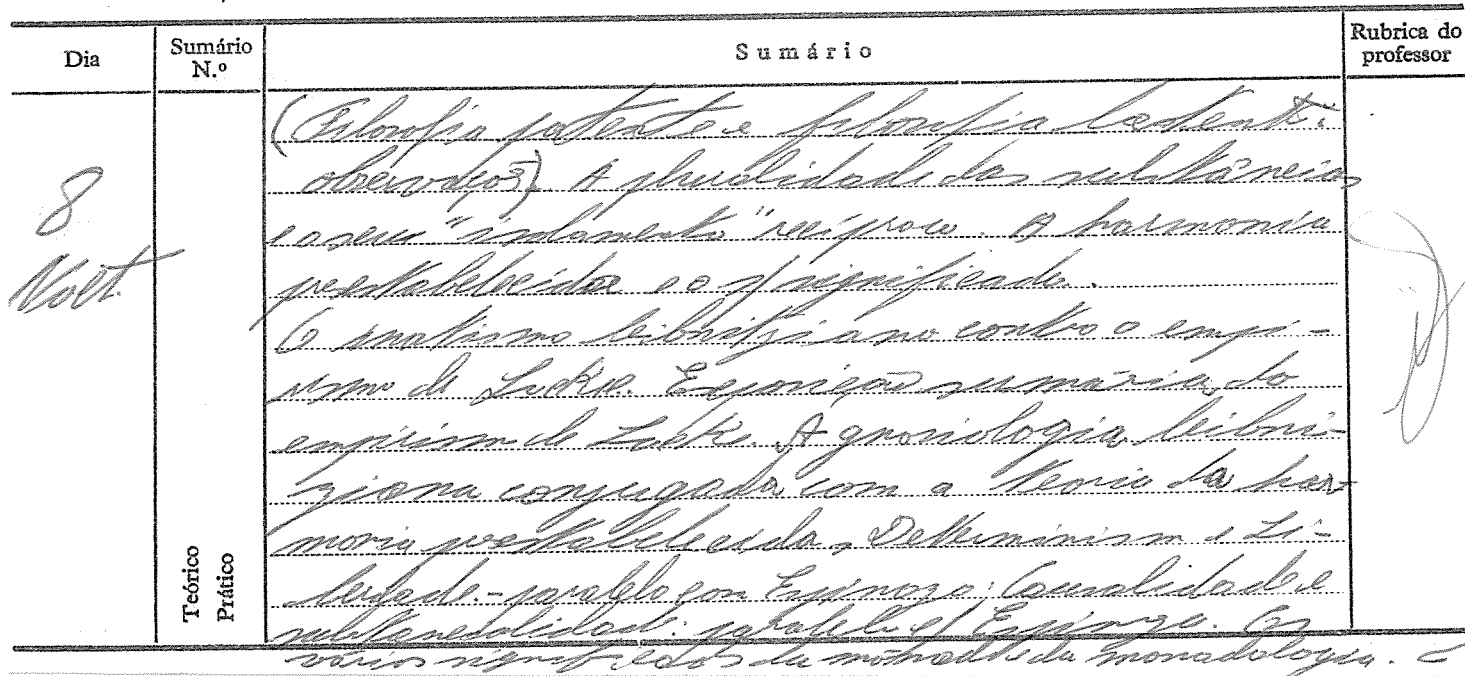 Dia
Sumário N.º
Sumário
Rubrica do professor
8
Teórico
Prático
(Filosofia patente e filosofia latente:
observações). A pluralidade das substâncias
e o seu "isolamento" recíproco. A harmonia
prestabelecida e o s/ significado.
O inatismo leibniziano contra o empi-
rismo de Locke. Exposição sumária do
empirismo de Locke. A gnosiologia leibni-
ziana conjugada com a teoria da har-
monia prestabelecida, Determinismo e Li-
berdade - paralelo com Espinoza; Causalidade e
substancialidade: paralelo c/ Espinoza. Os
vários significados da mónada e da monadologia.